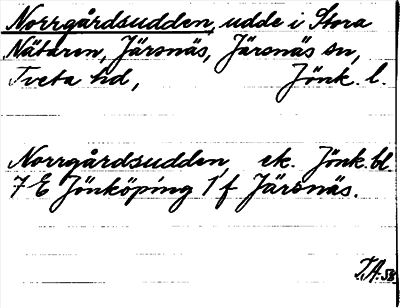 Norrgårdsudden, udde i Stora
Nätaren, Järsnäs, Järsnäs sn,
Tveta hd, Jönk. l.
Norrgårdsudden, ek. Jönk.bl.
7 E Jönköping 1 f Järsnäs.
I.A. 58